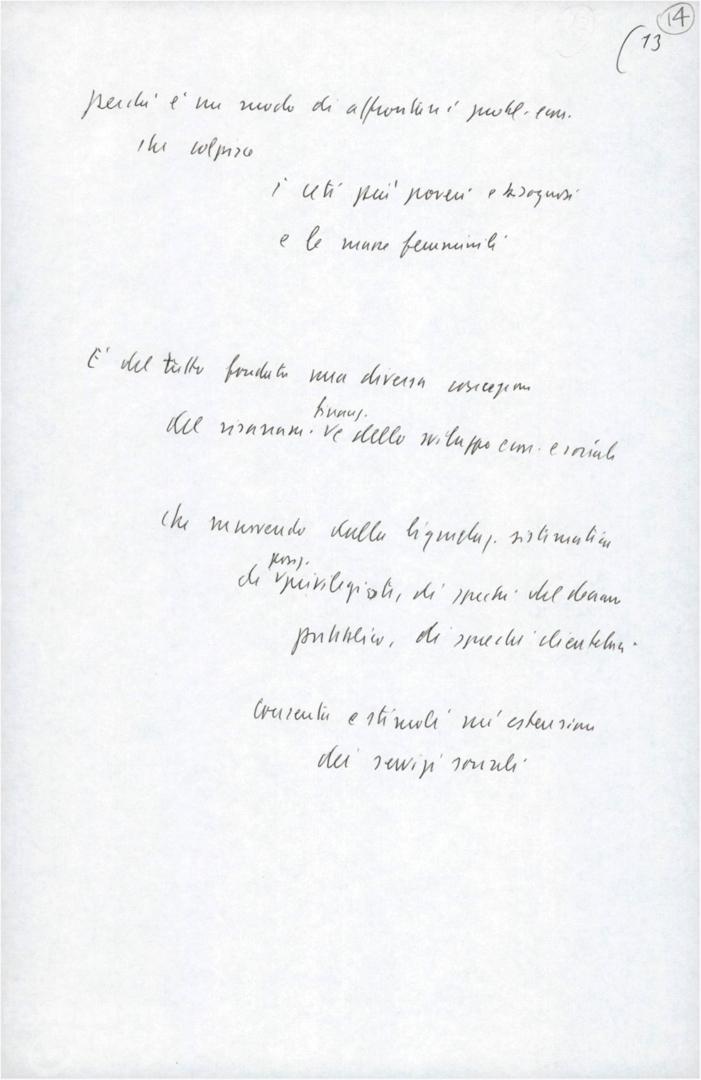 14
13
perché è un modo di affrontare i probl. econ.
che colpisce
i ceti più poveri e bisognosi
e le masse femminili
E' del tutto fondata una diversa concezione
finanz.
del risanam. e dello sviluppo econ. e sociale
che muovendo dalla liquidaz. sistematica
posiz.
di privilegiate, di sprechi del denaro
pubblico, di sprechi clientelari
consenta e stimoli un'estensione
dei servizi sociali